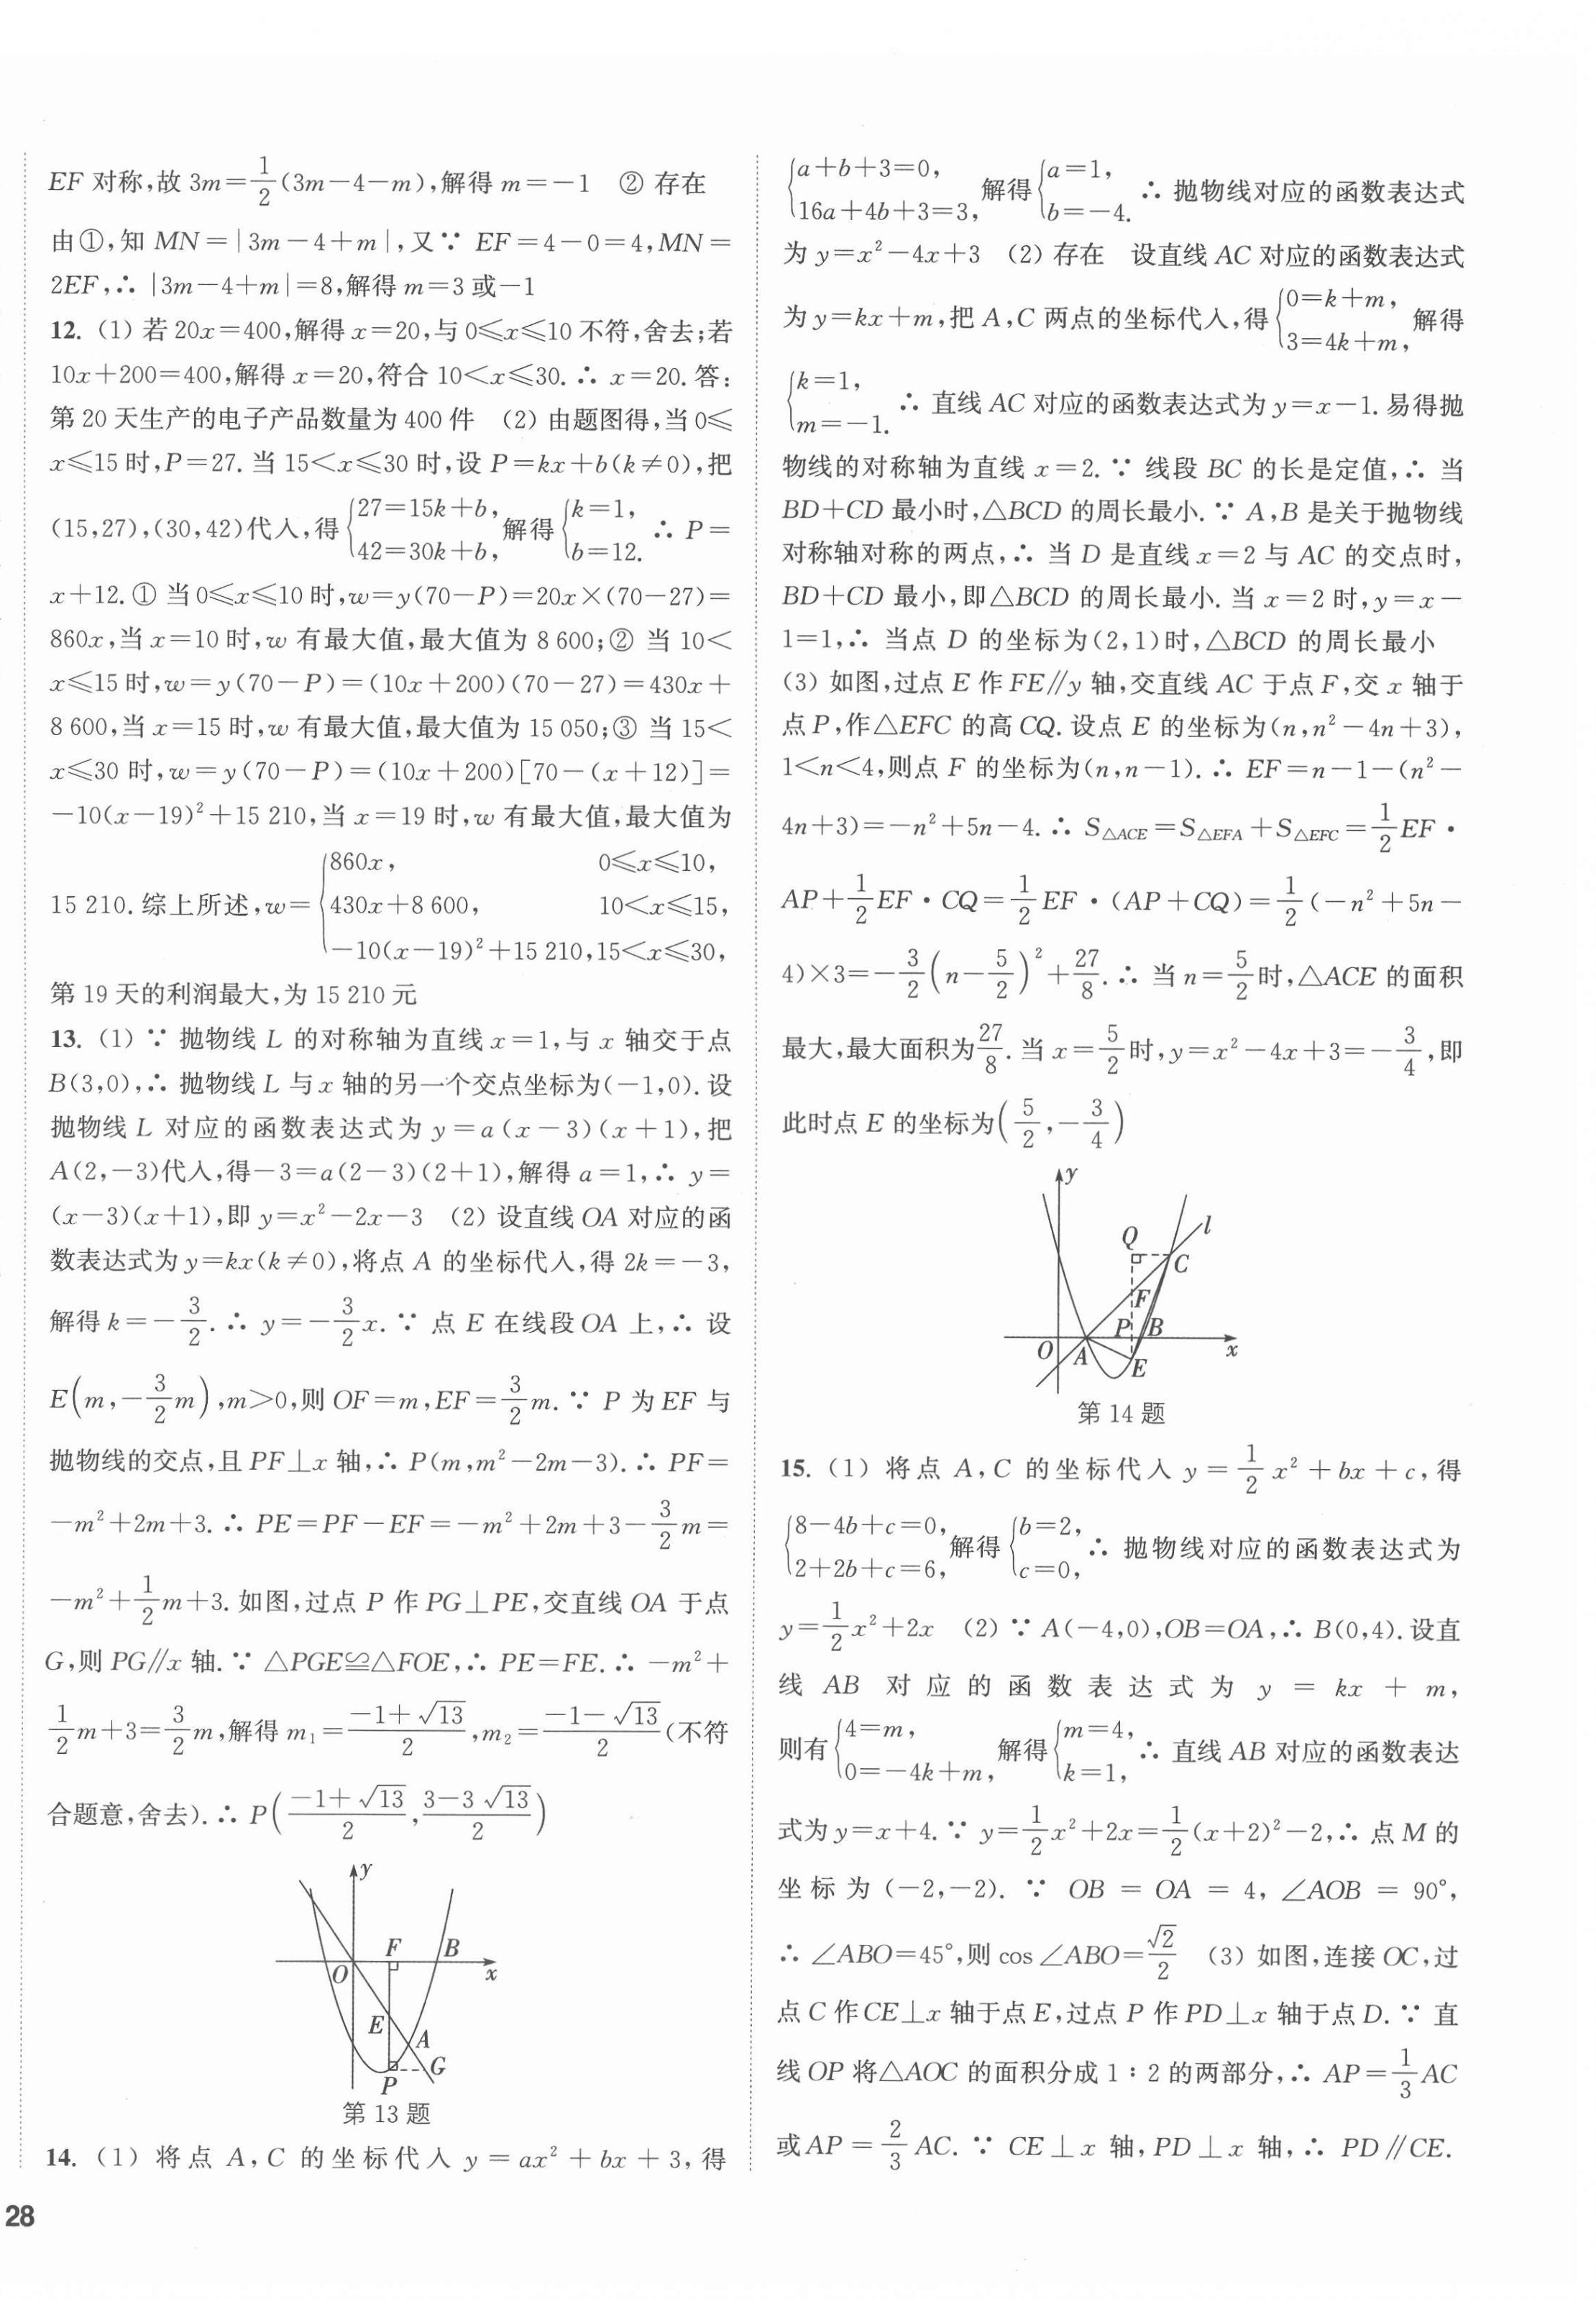 EF 对称,故 3m=\frac{1}{2}(3m-4-m),解得 m=-1 ② 存在
由①,知 MN=|3m-4+m|,又∵ EF=4-0=4,MN=
2EF,∴ |3m-4+m|=8,解得 m=3 或-1
12. (1) 若 20x=400,解得 x=20,与 0⩽x⩽10 不符,舍去;若
10x+200=400,解得 x=20,符合 10<x⩽30. ∴ x=20. 答:
第 20 天生产的电子产品数量为 400 件 (2) 由题图得,当 0⩽
x⩽15 时,P=27. 当 15<x⩽30 时,设 P=kx+b(k≠0),把
(15,27),(30,42)代入,得 {27=15k+b, 42=30k+b, 解得 {k=1, b=12. ∴ P=
x+12. ① 当 0⩽x⩽10 时,w=y(70-P)=20x×(70-27)=
860x,当 x=10 时,w 有最大值,最大值为 8 600;② 当 10<
x⩽15 时,w=y(70-P)=(10x+200)(70-27)=430x+
8 600,当 x=15 时,w 有最大值,最大值为 15 050;③ 当 15<
x⩽30 时,w=y(70-P)=(10x+200)[70-(x+12)]=
-10(x-19)²+15 210,当 x=19 时,w 有最大值,最大值为
15 210. 综上所述,w= {860x, 0⩽x⩽10, 430x+8 600, 10<x⩽15, -10(x-19)²+15 210, 15<x⩽30,
第 19 天的利润最大,为 15 210 元
13. (1) ∵ 抛物线 L 的对称轴为直线 x=1,与 x 轴交于点
B(3,0),∴ 抛物线 L 与 x 轴的另一个交点坐标为(-1,0). 设
抛物线 L 对应的函数表达式为 y=a(x-3)(x+1),把
A(2,-3)代入,得-3=a(2-3)(2+1),解得 a=1,∴ y=
(x-3)(x+1),即 y=x²-2x-3 (2) 设直线 OA 对应的函
数表达式为 y=kx(k≠0),将点 A 的坐标代入,得 2k=-3,
解得 k=-\frac{3}{2}. ∴ y=-\frac{3}{2}x. ∵ 点 E 在线段 OA 上,∴ 设
E(m,-\frac{3}{2}m),m>0,则 OF=m,EF=\frac{3}{2}m. ∵ P 为 EF 与
抛物线的交点,且 PF⊥x 轴,∴ P(m,m²-2m-3). ∴ PF=
-m²+2m+3. ∴ PE=PF-EF=-m²+2m+3-\frac{3}{2}m=
-m²+\frac{1}{2}m+3. 如图,过点 P 作 PG⊥PE,交直线 OA 于点
G,则 PG∥x 轴. ∵ △PGE≌△FOE,∴ PE=FE. ∴ -m²+
\frac{1}{2}m+3=\frac{3}{2}m,解得 m₁=\frac{-1+\sqrt{13}}{2},m₂=\frac{-1-\sqrt{13}}{2}(不符
合题意,舍去). ∴ P(\frac{-1+\sqrt{13}}{2},\frac{3-3\sqrt{13}}{2})
y
F B
O x
E A
G
P
第 13 题
14. (1) 将点 A,C 的坐标代入 y=ax²+bx+3,得
28
{a+b+3=0, 16a+4b+3=3, 解得 {a=1, b=-4. ∴ 抛物线对应的函数表达式
为 y=x²-4x+3 (2) 存在 设直线 AC 对应的函数表达式
为 y=kx+m,把 A,C 两点的坐标代入,得 {0=k+m, 3=4k+m, 解得
{k=1, m=-1. ∴ 直线 AC 对应的函数表达式为 y=x-1. 易得抛
物线的对称轴为直线 x=2. ∵ 线段 BC 的长是定值,∴ 当
BD+CD 最小时,△BCD 的周长最小. ∵ A,B 是关于抛物线
对称轴对称的两点,∴ 当 D 是直线 x=2 与 AC 的交点时,
BD+CD 最小,即△BCD 的周长最小. 当 x=2 时,y=x-
1=1,∴ 当点 D 的坐标为(2,1)时,△BCD 的周长最小
(3) 如图,过点 E 作 FE∥y 轴,交直线 AC 于点 F,交 x 轴于
点 P,作△EFC 的高 CQ. 设点 E 的坐标为(n,n²-4n+3),
1<n<4,则点 F 的坐标为(n,n-1). ∴ EF=n-1-(n²-
4n+3)=-n²+5n-4. ∴ S△ACE=S△EFA+S△EFC=\frac{1}{2}EF·
AP+\frac{1}{2}EF·CQ=\frac{1}{2}EF·(AP+CQ)=\frac{1}{2}(-n²+5n-
4)×3=-\frac{3}{2}(n-\frac{5}{2})²+\frac{27}{8}. ∴ 当 n=\frac{5}{2}时,△ACE 的面积
最大,最大面积为\frac{27}{8}. 当 x=\frac{5}{2}时,y=x²-4x+3=-\frac{3}{4},即
此时点 E 的坐标为(\frac{5}{2},-\frac{3}{4})
y
Q l
C
F
P B
O A x
E
第 14 题
15. (1) 将点 A,C 的坐标代入 y=\frac{1}{2}x²+bx+c,得
{8-4b+c=0, 2+2b+c=6, 解得 {b=2, c=0, ∴ 抛物线对应的函数表达式为
y=\frac{1}{2}x²+2x (2) ∵ A(-4,0),OB=OA,∴ B(0,4). 设直
线 AB 对应的函数表达式为 y=kx+m,
则有 {4=m, 0=-4k+m, 解得 {m=4, k=1, ∴ 直线 AB 对应的函数表达
式为 y=x+4. ∵ y=\frac{1}{2}x²+2x=\frac{1}{2}(x+2)²-2,∴ 点 M 的
坐标为(-2,-2). ∵ OB=OA=4,∠AOB=90°,
∴ ∠ABO=45°,则 cos ∠ABO=\frac{\sqrt{2}}{2} (3) 如图,连接 OC,过
点 C 作 CE⊥x 轴于点 E,过点 P 作 PD⊥x 轴于点 D. ∵ 直
线 OP 将△AOC 的面积分成 1∶2 的两部分,∴ AP=\frac{1}{3}AC
或 AP=\frac{2}{3}AC. ∵ CE⊥x 轴,PD⊥x 轴,∴ PD∥CE.